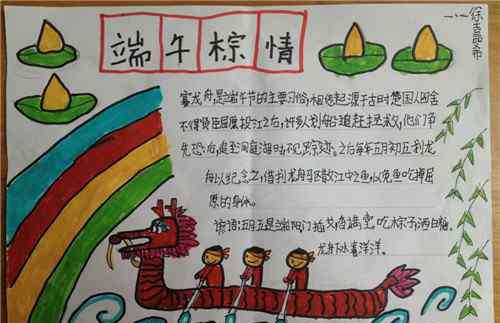 端午棕情
赛龙舟,是端午节的主要习俗,相传起源于古时楚国人因舍
不得贤臣屈原投江之后,许多人划船追赶拯救,他们争
先恐后,追至洞庭湖时不见踪迹。之后每年五月初五划龙
舟以纪念之,借划龙舟驱散江中之鱼,以免鱼吃掉屈
原的身体。
谚语:五月五是端阳门插艾香满堂。吃粽子洒白糖。
龙舟下水喜洋洋。